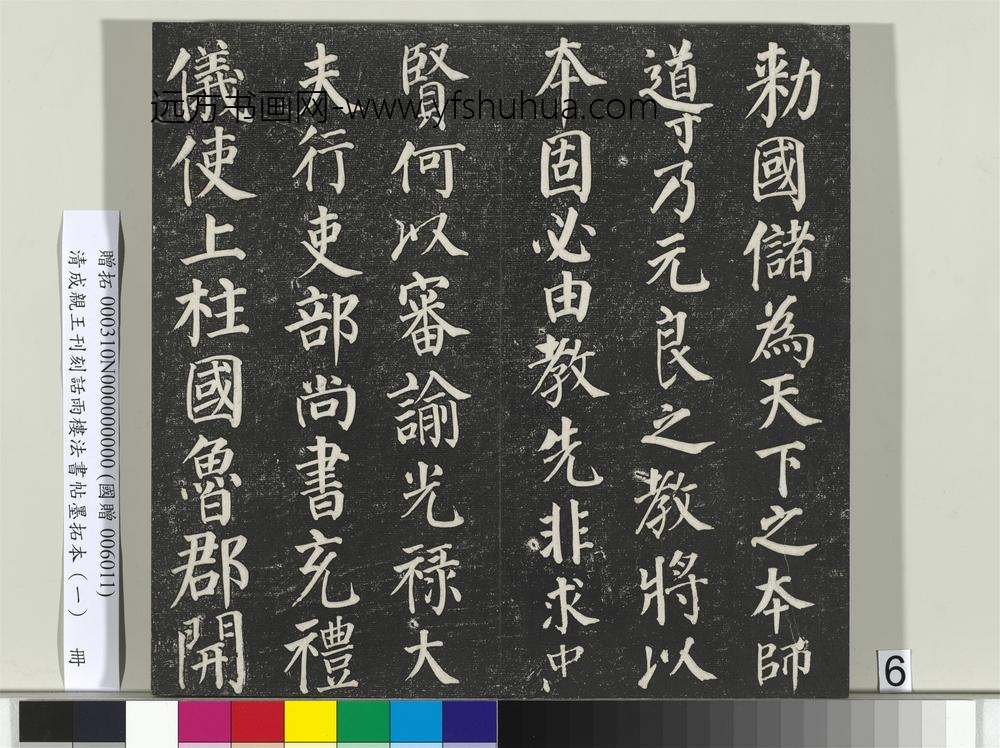 勑國儲為天下之本師
導乃元良之教將以
本固必由教先非求中
賢何以審諭光禄大
夫行吏部尚書充禮
儀使上柱國魯郡開
远方书画网-www.yfshuhua.com
贈拓 000310N000000000 (國贈 006011)
清成親王刊刻詒雨樓法書帖墨拓本(一) 冊
6